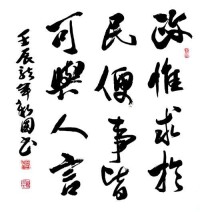 政惟求於
民便事皆
可與人言
壬辰龍年國書